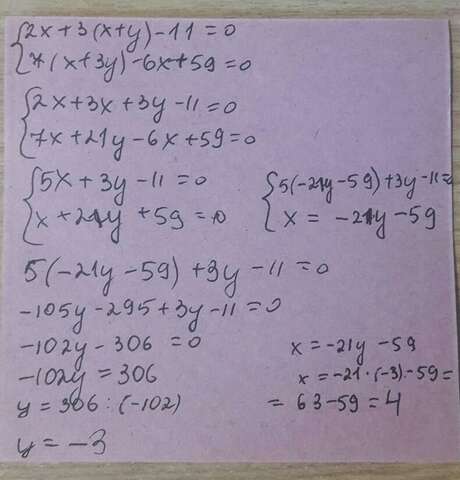 2x+3(x+y)-11=0
7(x+3y)-6x+59=0
2x+3x+3y-11=0
7x+21y-6x+59=0
5x+3y-11=0
x+21y+59=0
5(-21y-59)+3y-11=
x=-21y-59
5(-21y-59)+3y-11=0
-105y-295+3y-11=0
-102y-306=0
-102y=306
y=306:(-102)
y=-3
x=-21y-59
x=-21·(-3)-59=
=63-59=4